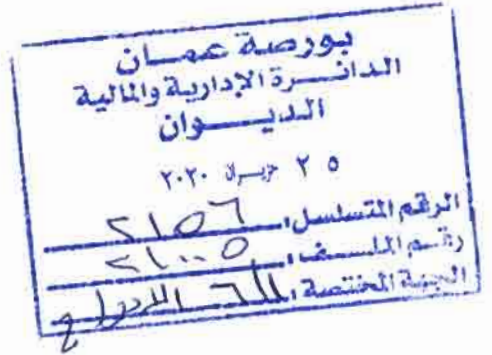 بورصة عمان
الدائرة الإدارية والمالية
الديوان
٢٥ حزيران ٢٠٢٠
الرقم المتسلسل: ٢١٥٦
رقم الملف: ٢١٠٠٥
الجهة المختصة: